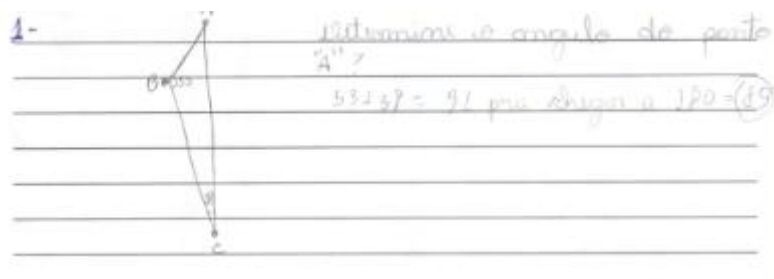 1-
Determine o angulo do ponto
"A" ?
B
53+38 = 91 pra chegar a 180 = 89
C